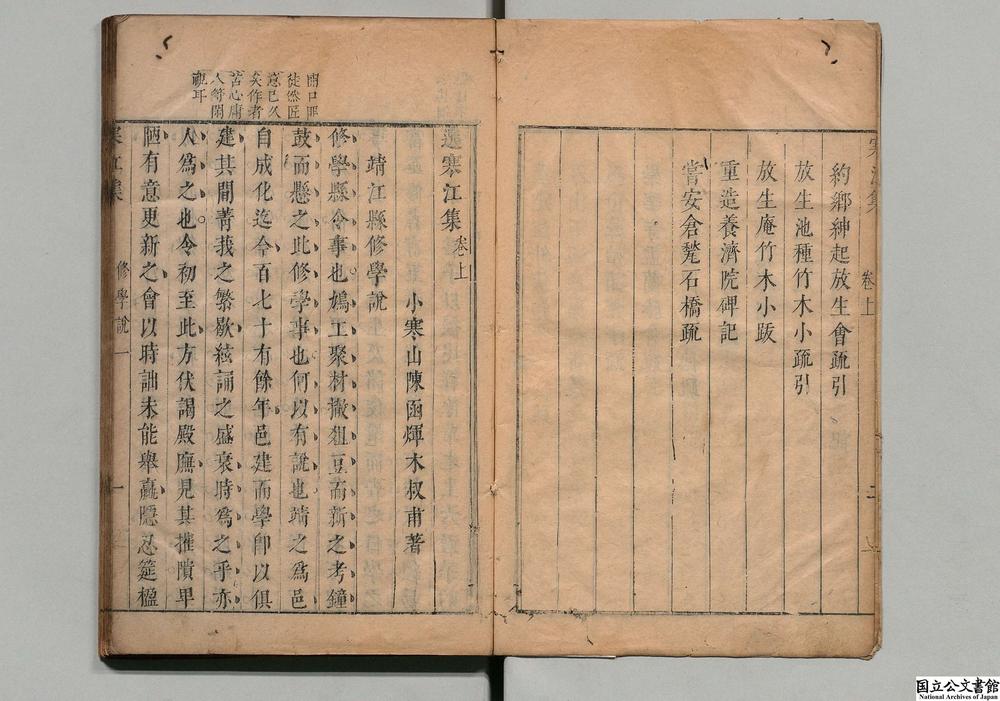 約鄉紳起放生會疏引
放生池種竹木小疏引
放生庵竹木小跋
重造養濟院碑記
嘗安倉甃石橋疏
卷上
二
選寒江集 卷上
小寒山陳函煇木叔甫著
靖江縣修學說
修學縣令事也鳩工聚材撤俎豆而新之考鐘
鼓而懸之此修學事也何以有說也靖之爲邑
自成化迄今百七十有餘年邑建而學卽以俱
建其間菁莪之繁歇絃誦之盛衰時爲之乎亦
人爲之也令初至此方伏謁殿廡見其摧隤卑
陋有意更新之會以時詘未能舉羸隱忍筵楹
開口叫
徒然匠
意已久
矣作者
苦心庸
人等閑
視耳
寒江集
修學說
一
国立公文書館
National Archives of Japan